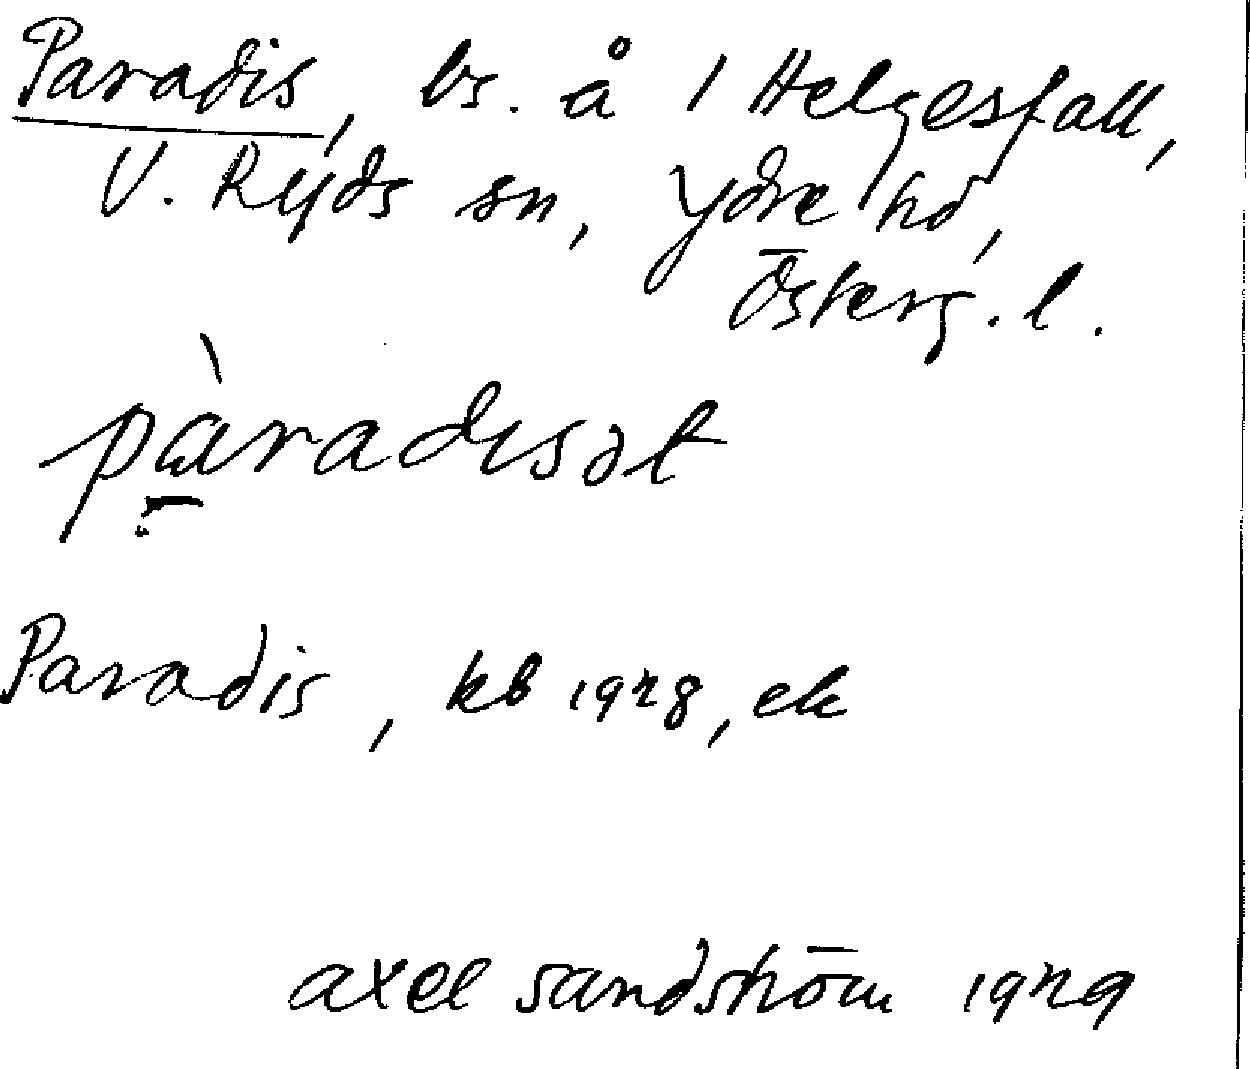 Paradis, bs. å 1 Helgesfall,
V. Ryds sn, Ydre hd,
Österg. l.
pàradisət
Paradis, kb 1928, ek
Axel Sandström 1929